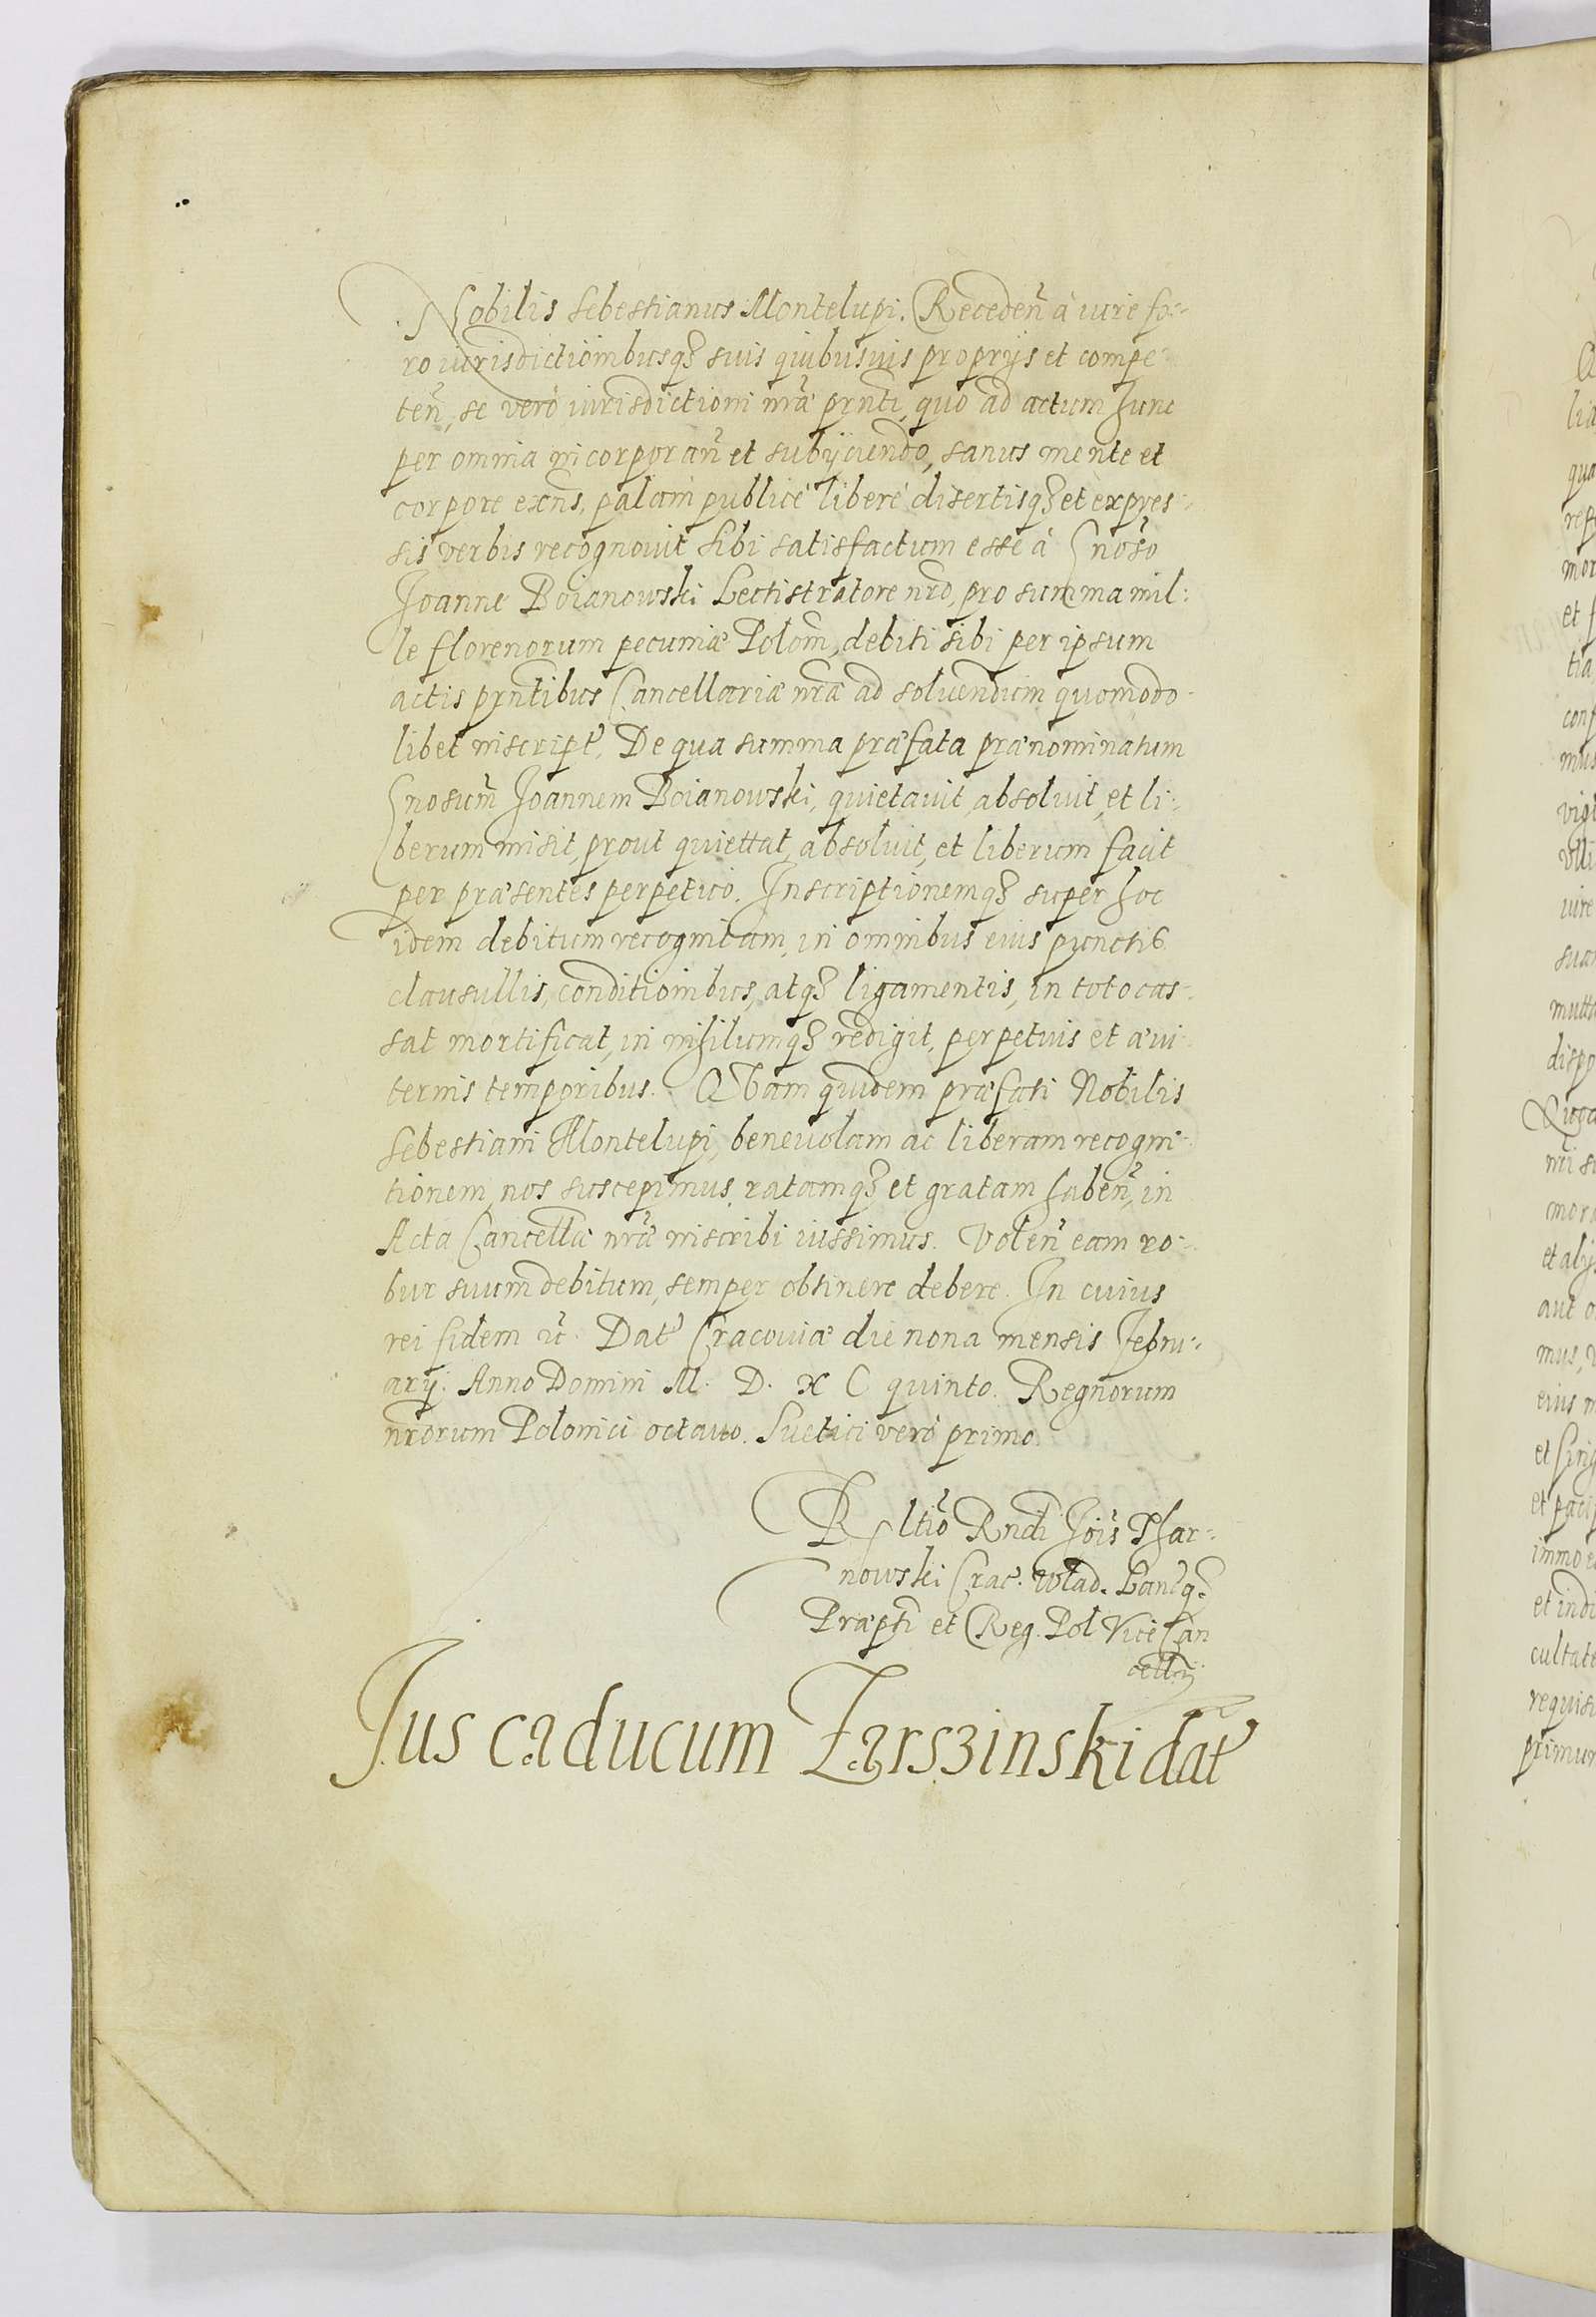 Nobilis Sebestianus Montelupi. Receden̄ à iure fo-
ro iurisdictionibusq₃ suis quibusuis proprijs et compe-
ten̄, se verò iurisdictioni nr̄æ pr̄nti, quo ad actum hunc
per omnia incorporan̄ et subijciendo, sanus mente et
corpore exn̄s, palam publicè liberè disertisq₃ et expres-
sis verbis recognovit sibi satisfactum esse à Gnoso
Joanne Boianowski Lectistratore nr̄o, pro summa mil:
le florenorum pecuniæ Polon̄, debiti sibi per ipsum
actis pr̄ntibus Cancellariæ nr̄æ ad soluendum quomodo-
libet inscript̄. De qua summa præfata prænominatum
Gnosum̄ Joannem Boianowski, quietauit, absoluit, et li-
berum misit, prout quiettat, absoluit, et liberum facit
per præsentes perpetuò. Inscriptionemq₃ super hoc
idem debitum recognitam, in omnibus eius punctis
clausullis, conditionibus, atq₃ ligamentis, in toto cas-
sat mortificat, in nihilumq₃ redigit, perpetuis et æui-
ternis temporibus. Quam quidem præfati Nobilis
Sebestiani Montelupi, beneuolam ac liberam recogni-
tionem, nos suscepimus, ratamq₃ et gratam haben̄, in
Acta Cancellæ nr̄æ inscribi iussimus. Volen̄ eam ro-
bur suum debitum, semper obtinere debere. In cuius
rei fidem etc̄. Dat̄ Cracouiæ die nona mensis Febru-
arij. Anno Domini M. D. X C quinto. Regnorum
nr̄orum Polonici octauo. Suetici verò primo.
Rltio Rndi Jois Thar-
nowski Crac. Wlad. Lancq₃
Præpti et Reg. Pol Vice Can
cellrij
Jus caducum Zarszinski dat̄